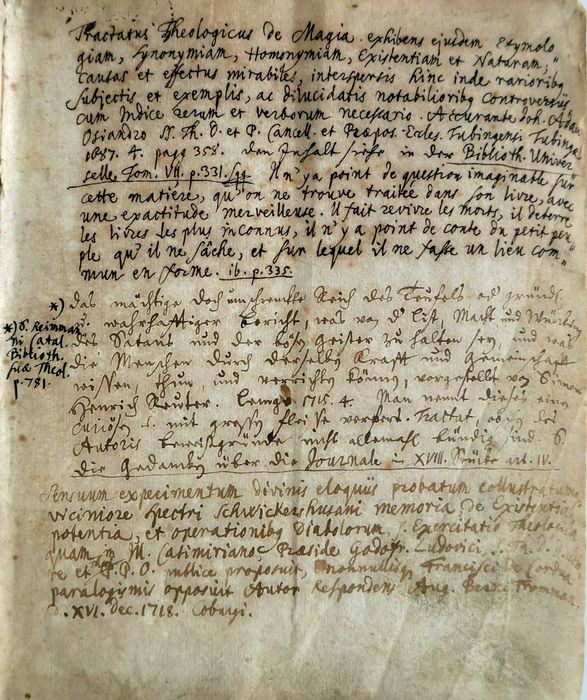 Tractatus Theologicus de Magia exhibens ejusdem Etymolo
giam, Synonymiam, Homonymiam, Existentiam et Naturam,
Causas et effectus mirabiles, interspersis hinc inde rarioribq
Subjectis et exemplis, ac dilucidatis notabilioribq Controversiis
cum Indice rerum et verborum necessario. Accurante Joh. Adam
Osiandro SS. Th. D. et P. Cancell. et Præpos. Eccles. Tubingensi. Tubingæ
1687. 4. pagg 358. den Inhalt siehe in der Biblioth. Univer
selle Tom. VII. p. 331. sqq. Il n'y a point de question imaginable sur
cette matiere, qu'on ne trouve traitée dans son livre, avec
une exactitude merveilleuse. Il fait revivre les morts, il deterre
les livres les plus inconnus, il n'y a point de conte du petit peu
ple qu'il ne sâche, et sur lequel il ne fasse un lieu com
mun en forme. ib. p. 335.
*) das mächtige doch umschrenkte Reich des Teufels od gründl.
u. wahrhafftiger bericht, was von d List, Macht und Würckung
des Satans und der bösen geister zu halten sey, und was
die Menschen durch derselben Krafft und Gemeinschafft
wissen, thun, und verrichten können, vorgestellt von Simon
Henrich Reuter. Lemgo. 1715. 4. Man nennt diesen einen
curiösen u. mit grossen fleisse verfert. Tractat, obgl. des
Autoris beweissgründe nicht allemahl bündig sind. S.
die Gedancken über die Journale in XVIII. Stücke art. IV.
*) S. Reimman
ni Catal.
Biblioth.
suæ Theol.
p. 781.
Sensuum experimentum divinis eloquiis probatum collustratum
viciniore Spectri Schwickershusani memoria de Existentia
potentia, et operationibq Diabolorum, Exercitatio Theologica
quam in Ill. Casimiriano Præside Godofr. Ludovici
re et P. P. O. publice proposuit, nonnullisq Francisci de Cordua
paralogismis opposuit Autor Respondens Aug. Bern. Fromman
d. XVI. Dec. 1718. Coburgi.